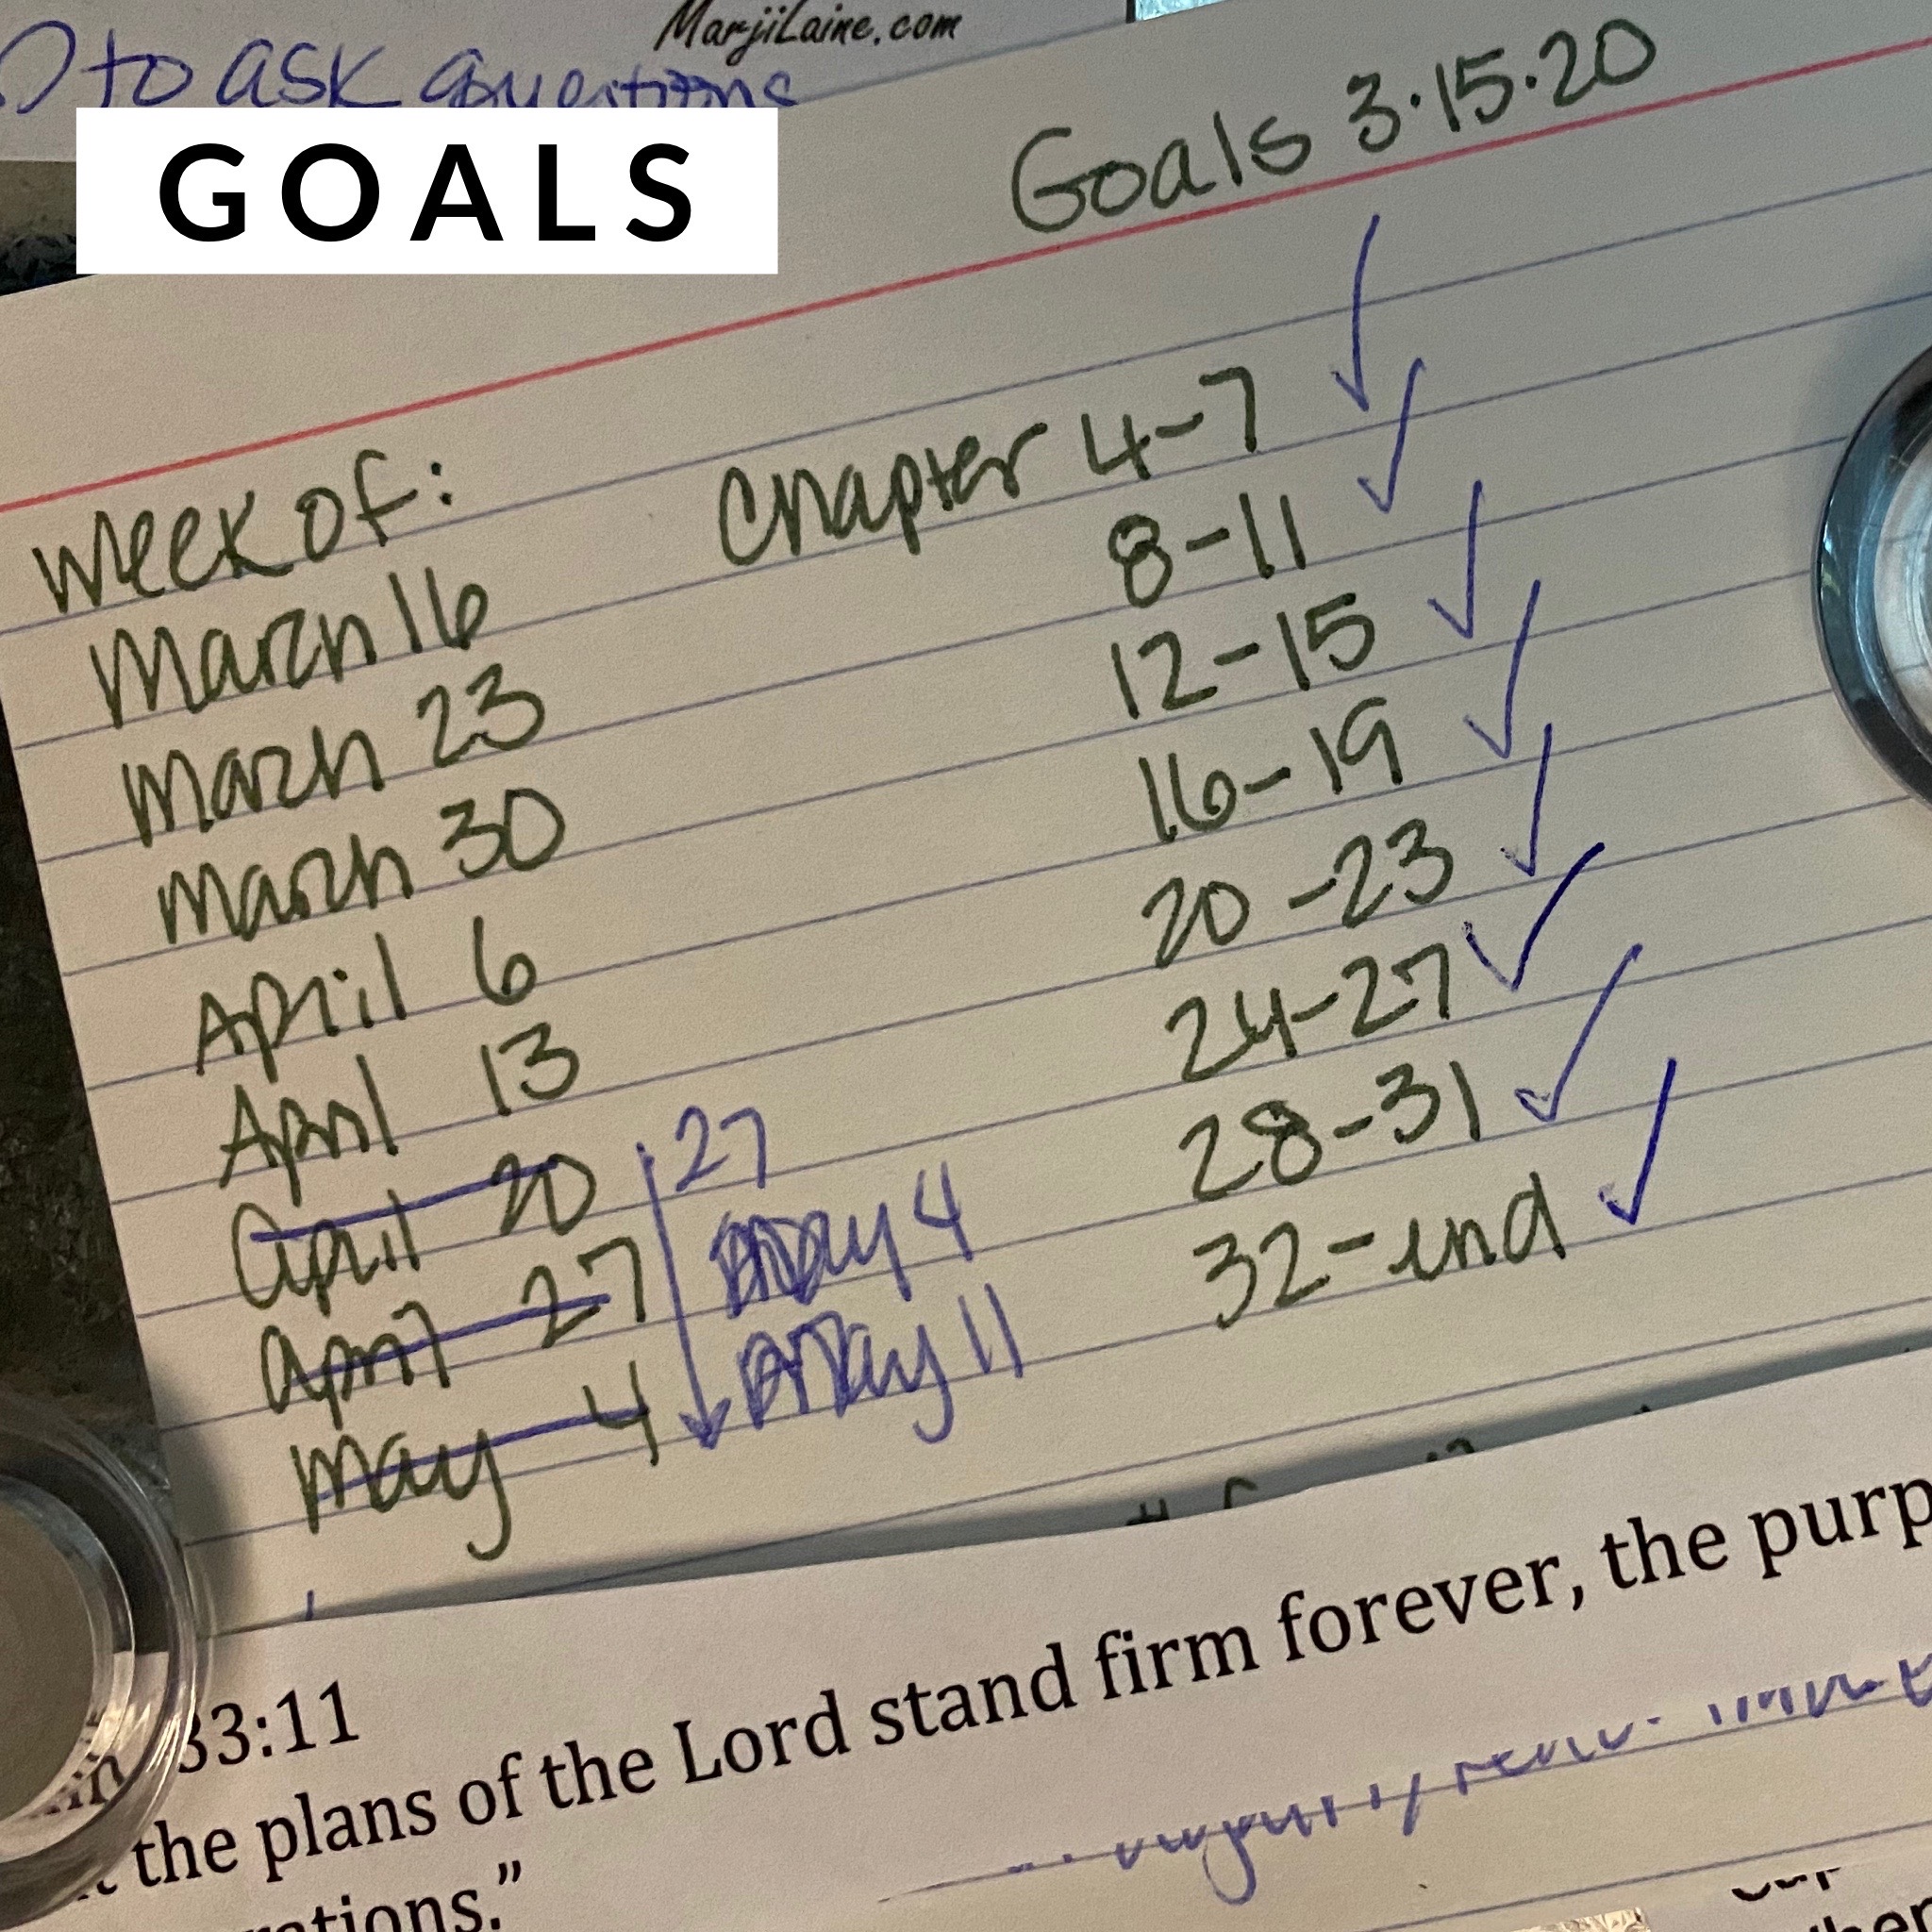 MarjiLaine.com
to ask questions
GOALS
Goals 3·15·20
Week of:
March 16 Chapter 4-7 ✓
March 23 8-11 ✓
March 30 12-15 ✓
April 6 16-19 ✓
April 13 20-23 ✓
April 20 27 24-27 ✓
April 27 May 4 28-31 ✓
May 4 May 11 32-end ✓
33:11
the plans of the Lord stand firm forever, the purp
ations.”